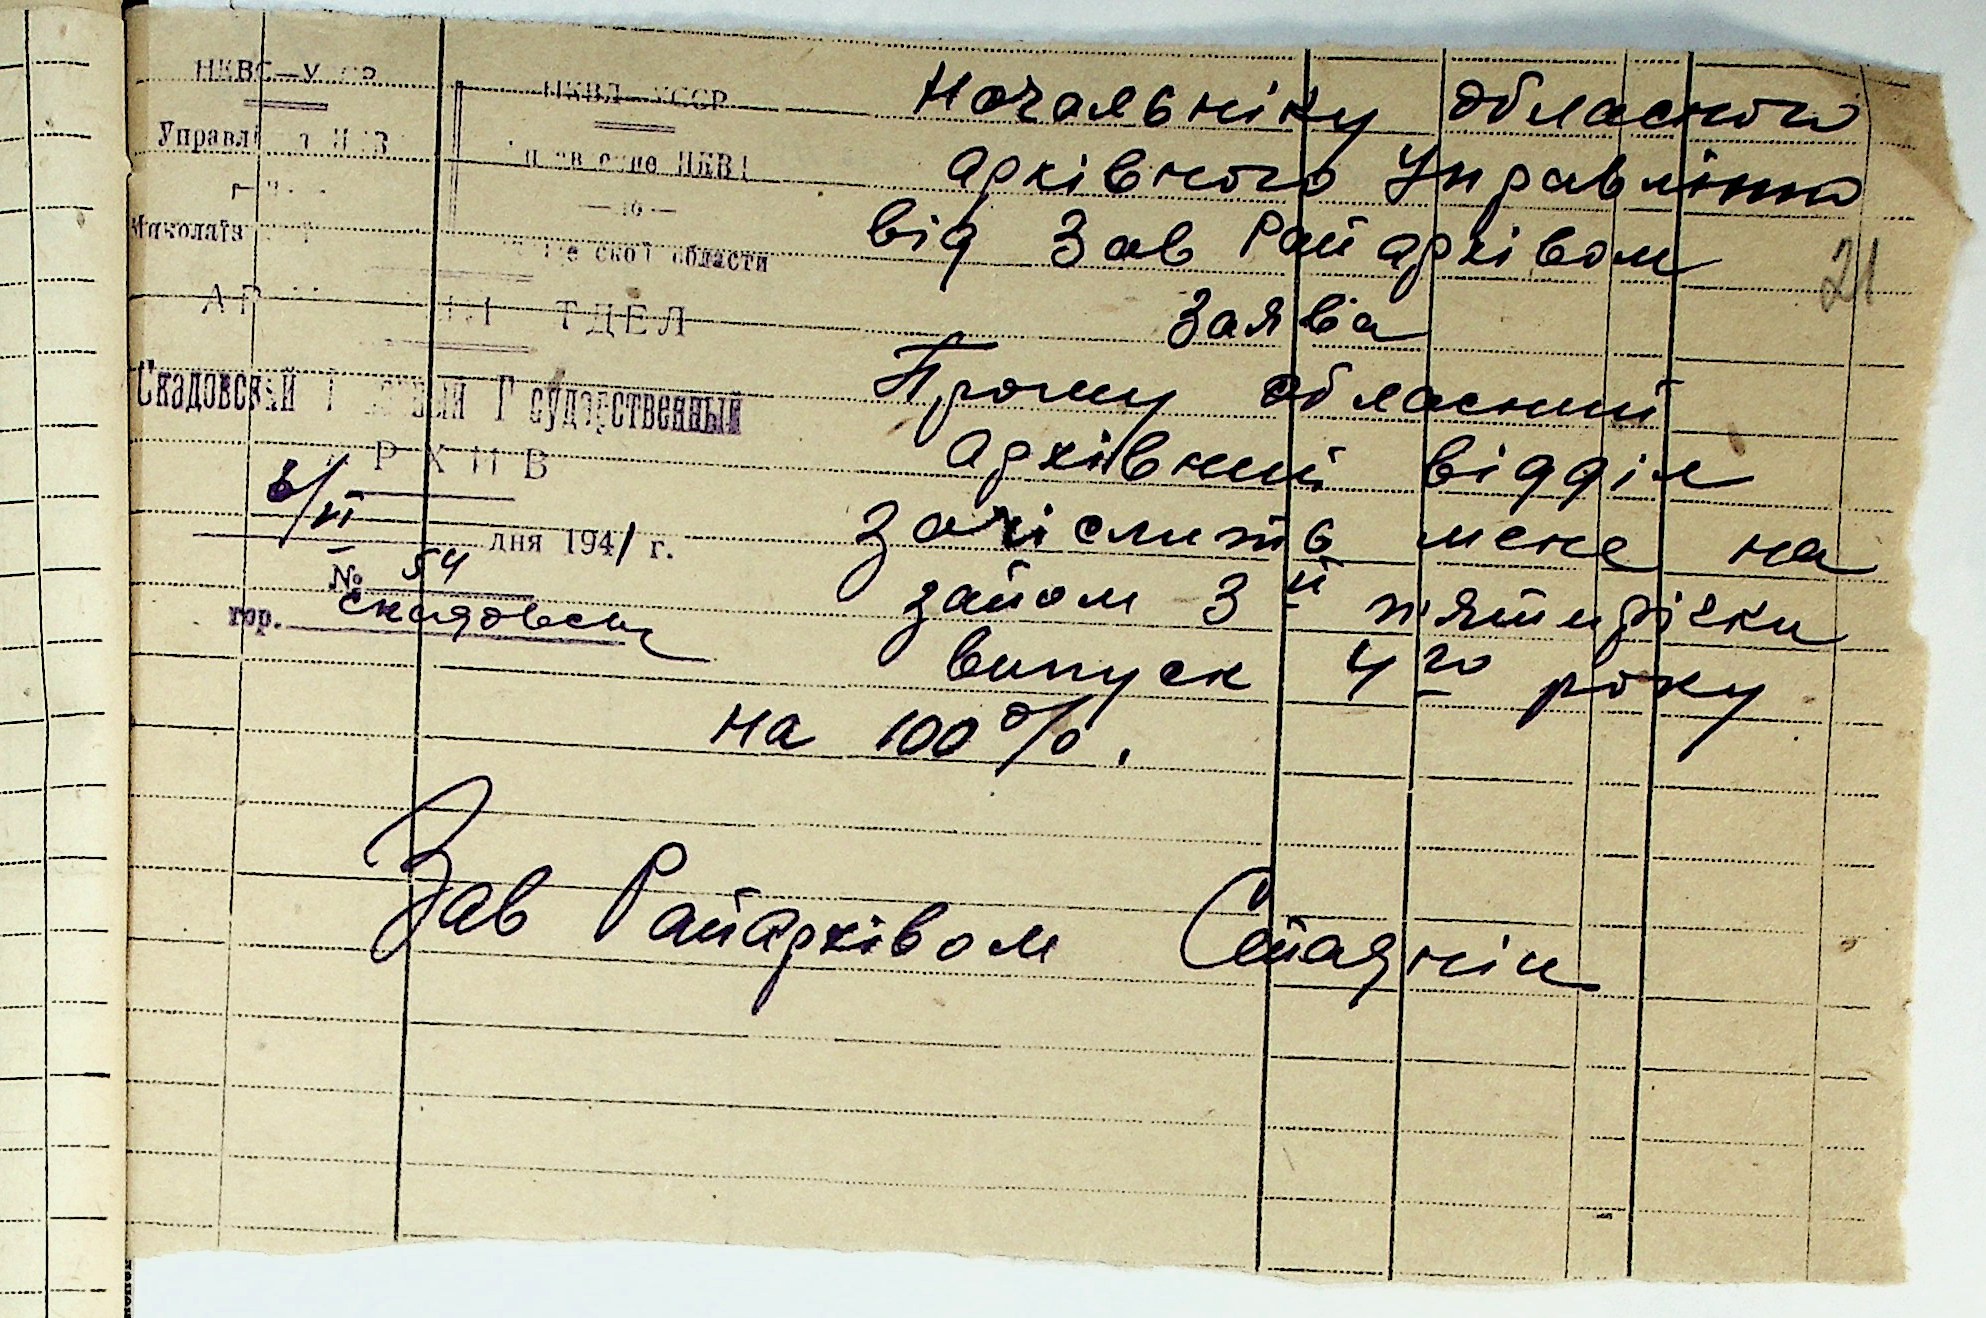 НКВС
НКВД УССР
НКВД
области
ТДЕЛ
Скадовский
Р Х И В
6/VI
дня 1941 г.
№ 54
гор. Скадовськ
Начальніку обласного
архівного Управління
від Зав Райархівом
Заява
Прошу обласний
архівний відділ
зачіслить мене на
займ 3й п'ятирічки
випуск 4го року
на 100%.
Зав Райархівом
21